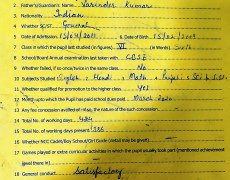 2. Father's/Guardian's Name Narender Kumar
3. Nationality Indian
4. Whether SC/ST General
5. Date of Admission 13/04/2011 6. Date of Birth 15/02/2003
7. Class in which the pupil last studied (in figures) VI (in Words) Sixth
8. School/Board Annual examination last taken with CBSE
9. Whether failed, if so once/twice in the same class No
10. Subjects Studied English, Hindi, Math, Punjabi, Sci & S.St
11. Whether qualified for promotion to the higher class Yes
12. Month upto which the Pupil has paid school dues paid March
13. Any fee concession availed of: if so, the nature of such concession
14. Total No. of working days
15. Total No. of working days present 186
16. Whether NCC Cadet/Boy Scout/Girl Guide (detail may be given)
17. Games played or extra curricular activities in which the pupil usually took part (mentioned achievement level there in)
18. General conduct Satisfactory